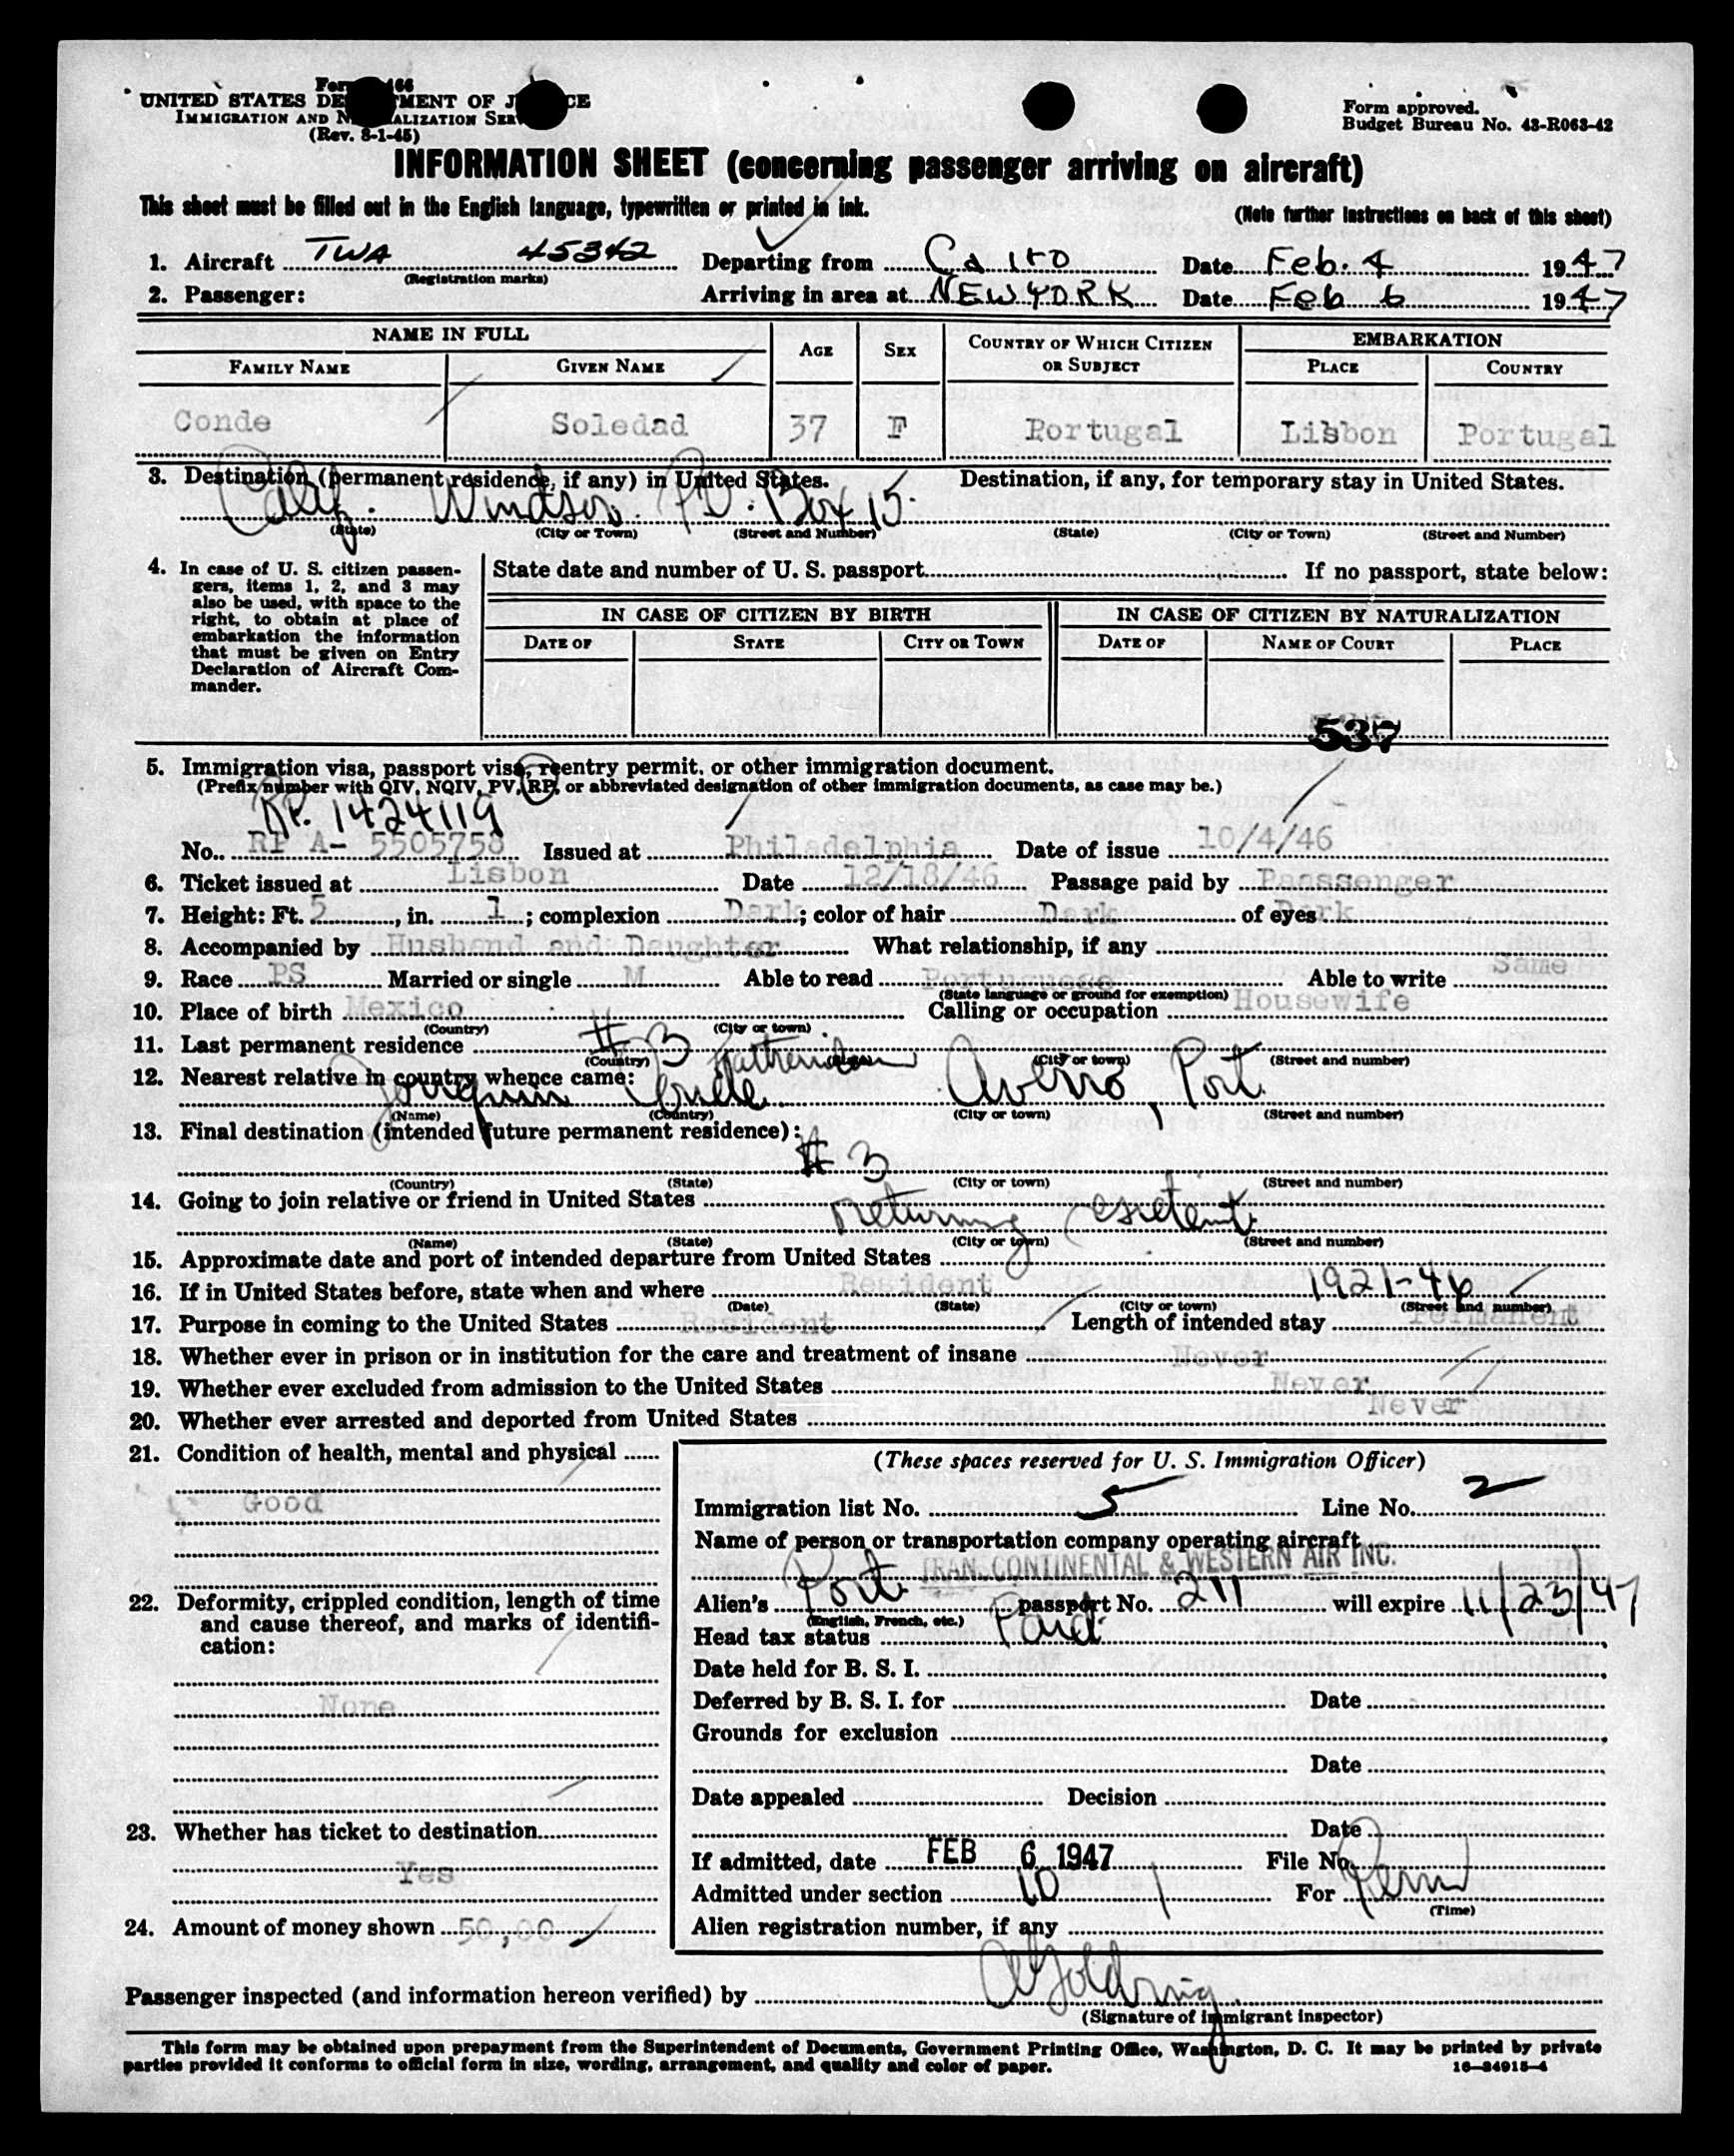 Form 466
UNITED STATES DEPARTMENT OF JUSTICE
IMMIGRATION AND NATURALIZATION SERVICE
(Rev. 8-1-45)
Form approved.
Budget Bureau No. 43-R063-42
INFORMATION SHEET (concerning passenger arriving on aircraft)
This sheet must be filled out in the English language, typewritten or printed in ink.
(Note further instructions on back of this sheet)
1. Aircraft TWA 45342 Departing from Cairo Date Feb. 4 1947
(Registration marks)
2. Passenger: Arriving in area at NEW YORK Date Feb 6 1947
NAME IN FULL AGE SEX COUNTRY OF WHICH CITIZEN OR SUBJECT EMBARKATION
FAMILY NAME GIVEN NAME PLACE COUNTRY
Conde Soledad 37 F Portugal Lisbon Portugal
3. Destination (permanent residence, if any) in United States. Destination, if any, for temporary stay in United States.
Calif. Windsor. P.O. Box 15.
(State) (City or Town) (Street and Number) (State) (City or Town) (Street and Number)
4. In case of U. S. citizen passen-
gers, items 1, 2, and 3 may
also be used, with space to the
right, to obtain at place of
embarkation the information
that must be given on Entry
Declaration of Aircraft Com-
mander.
State date and number of U. S. passport If no passport, state below:
IN CASE OF CITIZEN BY BIRTH IN CASE OF CITIZEN BY NATURALIZATION
DATE OF STATE CITY OR TOWN DATE OF NAME OF COURT PLACE
537
5. Immigration visa, passport visa, reentry permit, or other immigration document.
(Prefix number with QIV, NQIV, PV, RP, or abbreviated designation of other immigration documents, as case may be.)
RP. 1424119
No. RP A- 5505758 Issued at Philadelphia Date of issue 10/4/46
6. Ticket issued at Lisbon Date 12/18/46 Passage paid by Paassenger
7. Height: Ft. 5, in. 1; complexion Dark; color of hair Dark of eyes Dark
8. Accompanied by Husband and Daughter What relationship, if any
9. Race PS Married or single M Able to read Portuguese Able to write Same
(State language or ground for exemption)
10. Place of birth Mexico Calling or occupation Housewife
(Country) (City or town)
11. Last permanent residence # 3
(Country) (State) (City or town) (Street and number)
12. Nearest relative in country whence came:
Joaquim Conde Aveiro, Port
(Name) (Country) (City or town) (Street and number)
13. Final destination (intended future permanent residence):
# 3
(Country) (State) (City or town) (Street and number)
14. Going to join relative or friend in United States
Returning resident
(Name) (State) (City or town) (Street and number)
15. Approximate date and port of intended departure from United States
16. If in United States before, state when and where Resident 1921-46
(Date) (State) (City or town) (Street and number)
17. Purpose in coming to the United States Resident Length of intended stay Permanent
18. Whether ever in prison or in institution for the care and treatment of insane Never
19. Whether ever excluded from admission to the United States Never
20. Whether ever arrested and deported from United States Never
21. Condition of health, mental and physical
Good
22. Deformity, crippled condition, length of time
and cause thereof, and marks of identifi-
cation:
None
23. Whether has ticket to destination
Yes
24. Amount of money shown 50,00
(These spaces reserved for U. S. Immigration Officer)
Immigration list No. 5 Line No. 2
Name of person or transportation company operating aircraft
TRANSCONTINENTAL & WESTERN AIR INC.
Alien's Port. passport No. 211 will expire 11/23/47
(English, French, etc.)
Head tax status Paid.
Date held for B. S. I.
Deferred by B. S. I. for Date
Grounds for exclusion
Date
Date appealed Decision
Date
If admitted, date FEB 6 1947 File No.
Admitted under section 10 For Perm
(Time)
Alien registration number, if any
Passenger inspected (and information hereon verified) by A Goldring
(Signature of immigrant inspector)
This form may be obtained upon prepayment from the Superintendent of Documents, Government Printing Office, Washington, D. C. It may be printed by private
parties provided it conforms to official form in size, wording, arrangement, and quality and color of paper. 16—24915-4